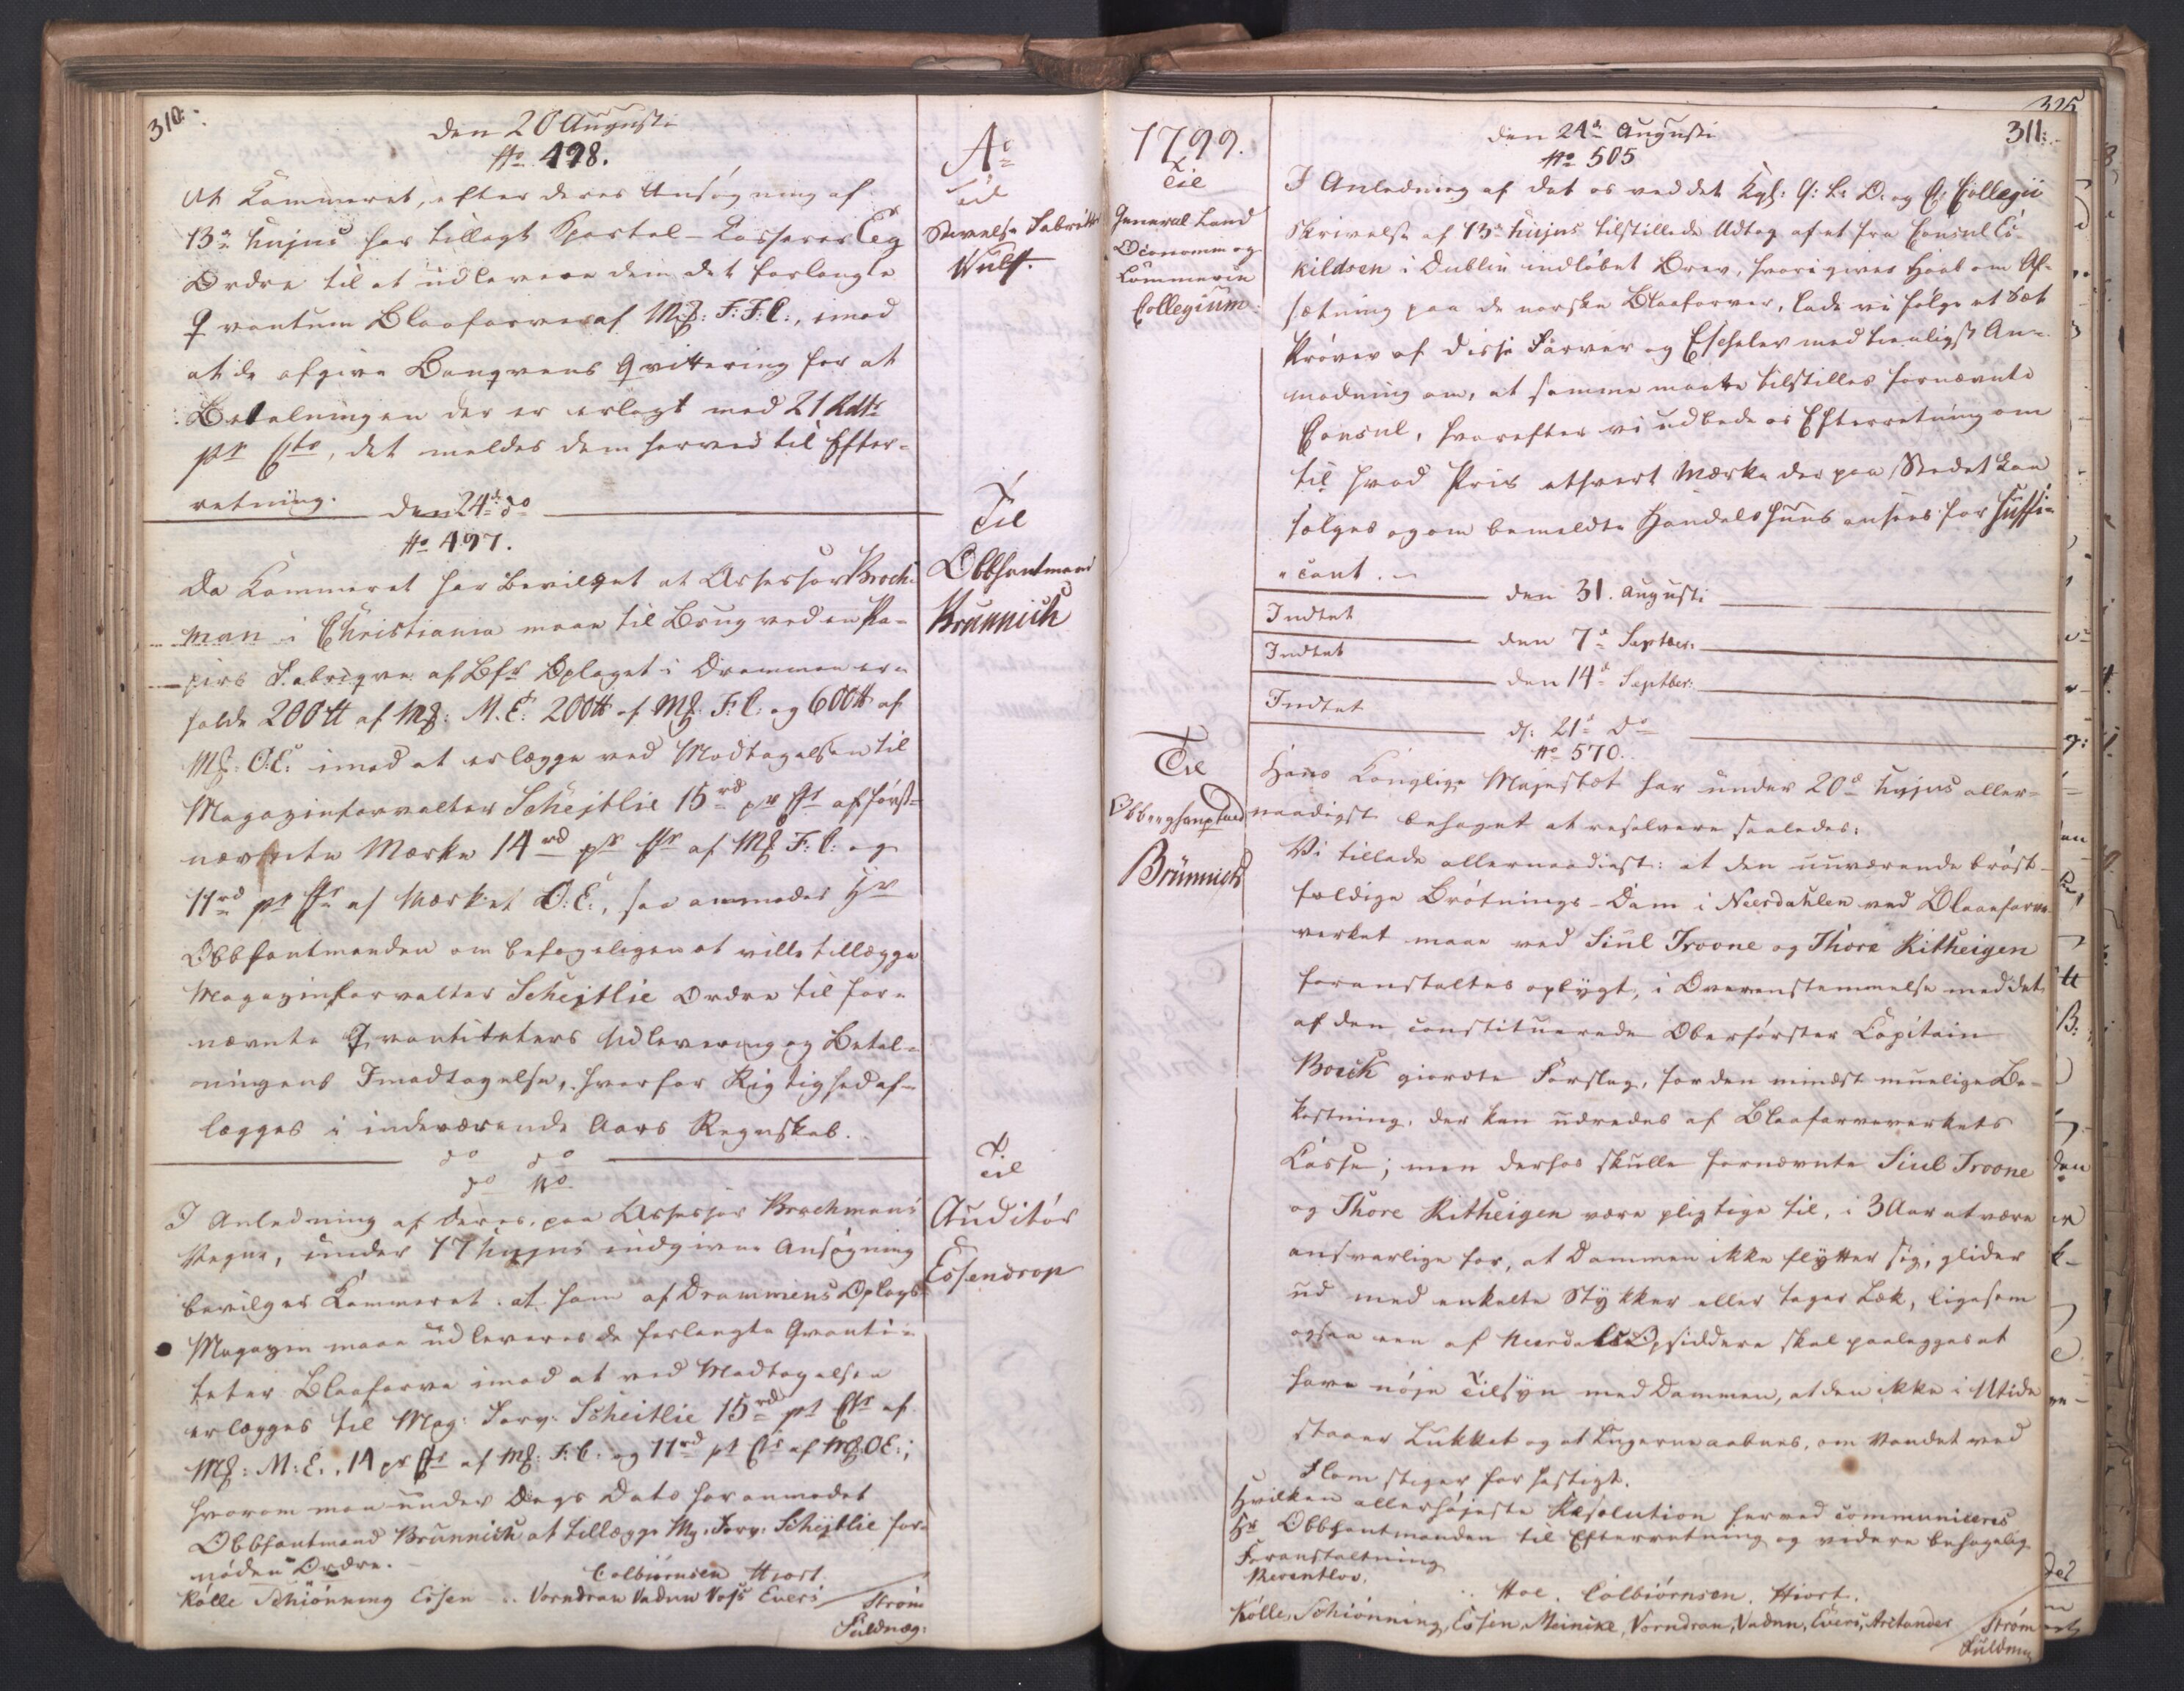 310.
den 20 Augusti
No 498.
At Kammeret, efter deres Ansøgning af
13de hujus har tillagt Portal-Casserer Eeg
Ordre til at udlevere dem det forlangte
Qvantum Blaafarve af Mk: F:F:C:, imod
at de afgive Banqvens Qvittering for at
Betalningen der er erlagt med 21 Rdlr
pr Ctr, det meldes dem herved til Efter-
retning.
Ao
Til
Stivelse Fabriqr
Wulff.
den 24de do
No 497.
Da Kammeret har bevilget at Assessor Broch-
man i Christiania maae til Brug ved en Pa-
pirs Fabriqve af Bfr Oplaget i Drammen er-
holde 200 tt af Mk: M.E: 200 tt af Mk: F:C: og 600 tt af
Mk: O:E: imod at erlægge ved Modtagelsen til
Magazinforvalter Schejtlie 15 rd pr Ctr af først-
nævnte Mærke 14 rd pr Ctr af Mk F:C: og
11 rd pr Ctr af Mærket O:E:, saa anmodes Hr
Obbhautmanden om behageligen at ville tillægge
Magazinforvalter Schejtlie Ordre til for-
nævnte Qvantiteters Udlevering og Betal-
ningens Imodtagelse, hvorfor Rigtighed af-
lægges i indeværende Aars Regnskab.
Til
Obbhautmand
Brünnich
do do
do No
I Anledning af deres, paa Assessor Brochmans
Vegne, under 17 hujus indgivne Ansøgning
bevilger Kammeret at ham af Drammens Oplags
Magazin maae udleveres de forlangte Qvanti-
teter Blaafarve imod at ved Modtagelsen
erlægges til Mag: Forv: Scheitlie 15 rd pr Ctr af
Mk: M:E:, 14 pr Ctr af Mk: F:C: og 11 rd pr Ctr af Mk OE:;
hvorom man under Dags Dato har anmodet
Obbhautmand Brünnich at tillægge Mg: Forv: Schejtlie for-
nøden Ordre.
Til
Auditør
Essendrop
Colbiørnsen Hiort
Kølle Schiønning Essen Vorndran Vadum Voss Evers Strøm
Suldnæg:
1799.
325
311.
den 24de Augusti
No 505
I Anledning af det os ved det Kgl: G: L: O: og C: Collegii
Skrivelse af 13de hujus tilstillede Udtog af et fra Consul Es-
kildsen i Dublin indløbet Brev, hvori gives Haab om Af-
sætning paa de norske Blaafarver, lade vi følge et Sæt
Prøver af disse Farver og Eschelev med tienligst An-
modning om, at samme maatte tilstilles fornævnte
Consul, hvorefter vi udbede os Efterretning om
til hvad Priis ethvert Mærke der paa Stedet kan
sælges og om bemeldte Handelshuus ansees for suffi-
cant.
Til
General Land
Oeconomie og
Commercie
Collegium.
den 31. Augusti
Indtet
den 7de Septbr.
Indtet
den 14de Septber:
Indtet
d: 21de do
No 570.
Hans Konglige Majestæt har under 20de hujus aller-
naadigst behaget at resolvere saaledes:
Vi tillade allernaadigst: at den nuværende brøst-
fældige Brøtnings-Dam i Neerdahlen ved Blaafarve-
verket maae ved Siul Troone og Thore Ritheigen
foranstaltes opbygt, i Overensstemmelse med det
af den constituerede Oberførster Capitain
Boeck giorte Forslag, for den mindst muelige Be-
kostning, der kan udredes af Blaafarveverkets
Casse; men derhos skulle fornævnte Siul Troone
og Thore Ritheigen være pligtige til, i 3 Aar at være
ansvarlige for, at Dammen ikke flytter sig, glider
ud med enkelte Stykker eller tager Læk, ligesom
ogsaa een af Neerdals Opsiddere skal paalægges at
have nøje Tilsyn med Dammen, at den ikke i Utide
staaer Lukket og at Lugerne aabnes, om Vandet ved
Flom stiger for hastigt.
Hvilken allerhøjeste Resolution herved communiceres
Hr Obbhautmanden til Efterretning og videre behagelig
Foranstaltning
Til
Obberghauptmand
Brünnich
Reventlov.
Hoe. Colbiørnsen. Hiort.
Kølle, Schiønning, Essen, Meincke, Vorndran, Vadum, Evers, Arctander Strøm
Suldnæg